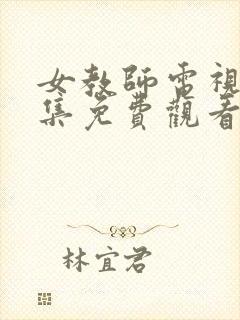 女教師電視
集免費觀看
林宜君